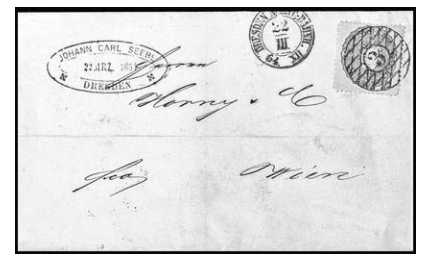 JOHANN CARL SEEBE
22 MRZ. 185
DRESDEN
DRESDEN
22
III
Herren
Horny & Co
fco
Wien